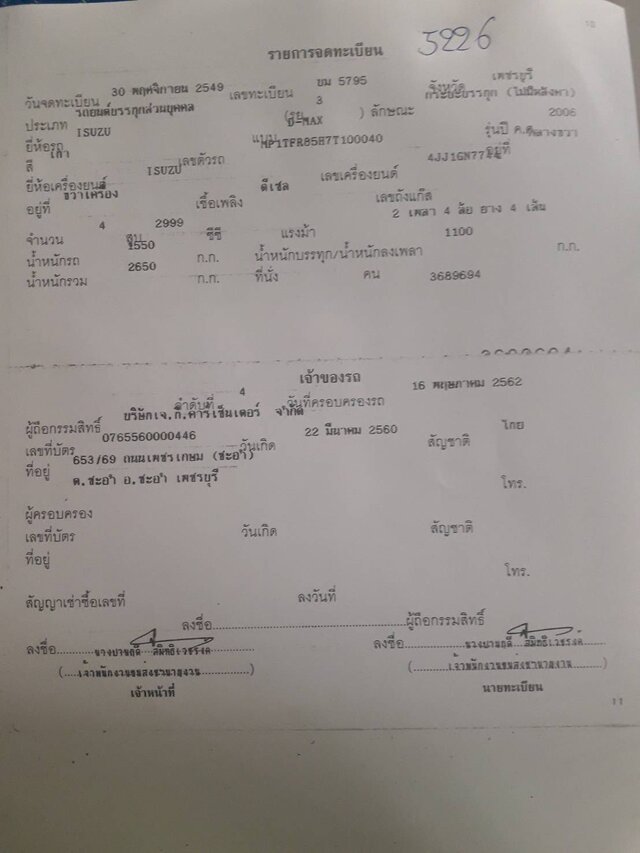 10
รายการจดทะเบียน 5226
วันจดทะเบียน 30 พฤศจิกายน 2549 เลขทะเบียน ยม 5795 จังหวัด เพชรบุรี
ประเภท รถยนต์บรรทุกส่วนบุคคล (รย. 3 ) ลักษณะ กระบะบรรทุก (ไม่มีหลังคา)
ยี่ห้อรถ ISUZU แบบ D-MAX รุ่นปี ค.ศ. 2006
สี เทา เลขตัวรถ MP1TFR85H7T100040 อยู่ที่ กลางขวา
ยี่ห้อเครื่องยนต์ ISUZU เลขเครื่องยนต์
อยู่ที่ ขวาเครื่อง เชื้อเพลิง ดีเซล เลขถังแก๊ส
จำนวน 4 สูบ 2999 ซีซี แรงม้า 2 เพลา 4 ล้อ ยาง 4 เส้น
น้ำหนักรถ 1550 ก.ก. น้ำหนักบรรทุก/น้ำหนักลงเพลา 1100 ก.ก.
น้ำหนักรวม 2650 ก.ก. ที่นั่ง คน 3689694
เจ้าของรถ
ลำดับที่ 4 วันที่ครอบครองรถ 16 พฤษภาคม 2562
ผู้ถือกรรมสิทธิ์ บริษัทเจ.ที.คาร์เซ็นเตอร์ จำกัด
เลขที่บัตร 0765560000446 วันเกิด 22 มีนาคม 2560 สัญชาติ ไทย
ที่อยู่ 653/69 ถนนเพชรเกษม (ชะอำ)
ต.ชะอำ อ.ชะอำ เพชรบุรี โทร.
ผู้ครอบครอง
เลขที่บัตร วันเกิด สัญชาติ
ที่อยู่
โทร.
สัญญาเช่าซื้อเลขที่ ลงวันที่
ลงชื่อ ผู้ถือกรรมสิทธิ์
ลงชื่อ ลงชื่อ
เจ้าหน้าที่ นายทะเบียน
11